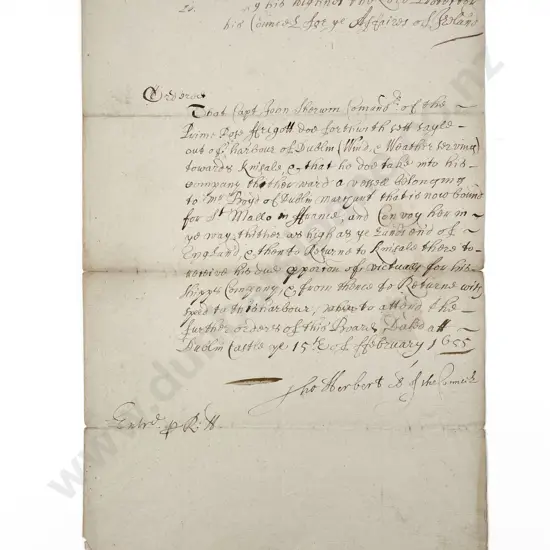 his highnes the Lord
his Councell for ye Affaires of Ireland
Ordered
That Capt John Sherwin Comandr of the
Prime Rose ffrigott doe forthwith sett sayle
out of harbour of Dublin (Wind & Weather serving)
towards Kinsale & that he doe take into his
company thitherward a vessell belonging
to Mr Boyd of Dublin marchant that is now bound
for St Mallo in ffrance, and Convoy her in
ye way thither as high as ye Lands end of
England, & then to Returne to Kinsale there to
receive his due pportion of victualls for his
shipps Company & from thence to Returne with
speed to this harbour, to attend the
further orders of this Board, Dated att
Dublin Castle ye 15th of ffebruary 1655
Tho: Herbert Cl of the Councell
Entrd p R: H
www.dunbarsloane.co.nz